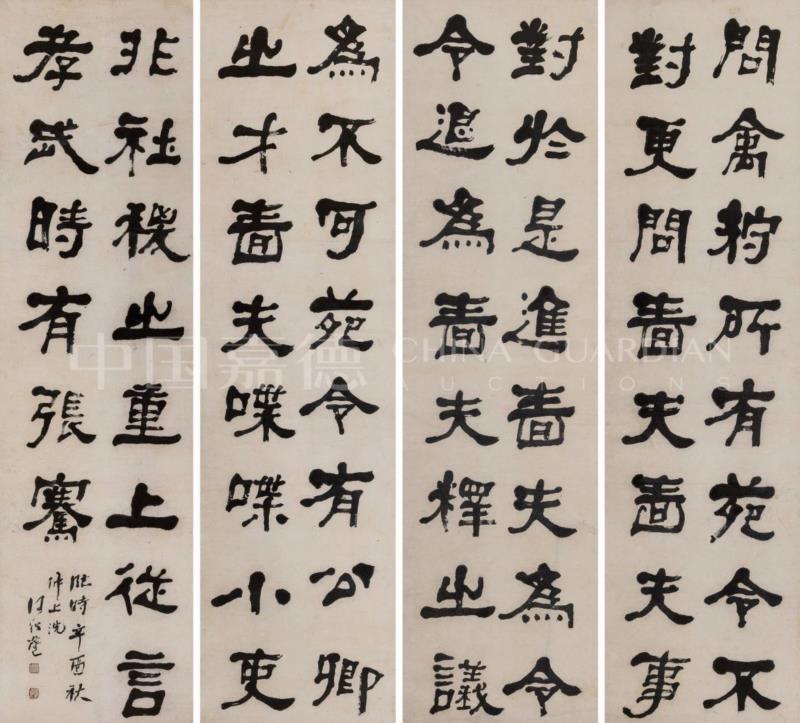 問禽狩所有苑令不
對更問嗇夫嗇夫事
對於是進嗇夫為令
令退為嗇夫釋之議
為不可苑令有公卿
之才嗇夫喋喋小吏
非社稷之重上從言
孝武時有張騫
臨時辛酉秋
仲上浣
何紹基
中国嘉德 CHINA GUARDIAN
AUCTIONS